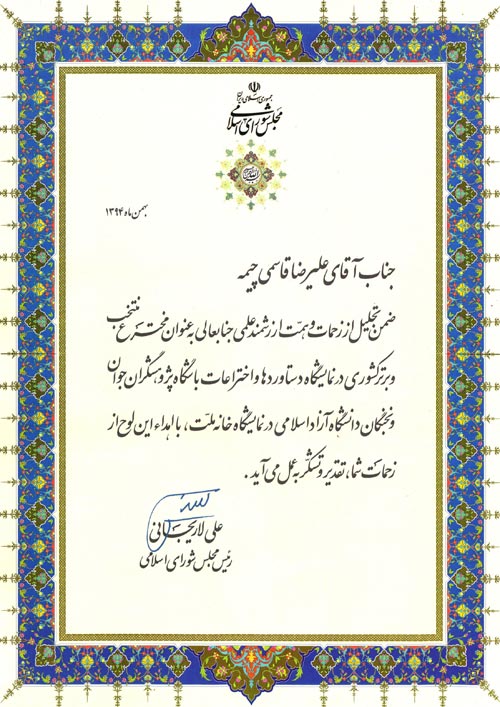 جمهوری اسلامی ایران
مجلس شورای اسلامی
بهمن ماه ۱۳۹۴
جناب آقای علیرضا قاسمی چیمه
ضمن تجلیل از زحمات و همت ارزشمند علمی جنابعالی به عنوان مخترع منتخب
و برتر کشوری در نمایشگاه دستاوردها و اختراعات باشگاه پژوهشگران جوان
و نخبگان دانشگاه آزاد اسلامی در نمایشگاه خانه ملت، با اهداء این لوح از
زحمات شما، تقدیر و تشکر به عمل می آید.
علی لاریجانی
رئیس مجلس شورای اسلامی